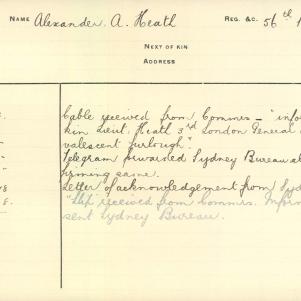 NAME Alexander. A. Heath REG. &C. 56th
NEXT OF KIN
ADDRESS
Cable received from Commrs – "info
kin Lieut. Heath 3rd London General
valescent furlough".
Telegram forwarded Sydney Bureau
firming same.
8 Letter of acknowledgement from Syd
E. "Slip" received from Commrs. Infor
sent Sydney Bureau.